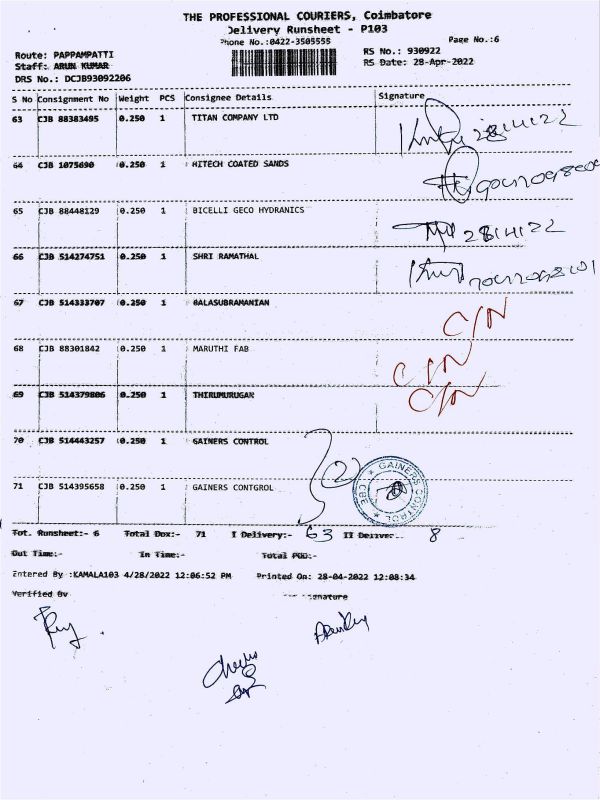 THE PROFESSIONAL COURIERS, Coimbatore
Delivery Runsheet - P103
Phone No.:0422-3505555
Page No.:6
Route: PAPPAMPATTI
RS No.: 930922
Staff: ARUN KUMAR
RS Date: 28-Apr-2022
DRS No.: DCJB93092206
S No Consignment No Weight PCS Consignee Details Signature
63 CJB 88383495 0.250 1 TITAN COMPANY LTD
28/4/22
64 CJB 1075690 0.250 1 HITECH COATED SANDS
65 CJB 88448129 0.250 1 BICELLI GECO HYDRANICS
28/4/22
66 CJB 514274751 0.250 1 SHRI RAMATHAL
67 CJB 514333707 0.250 1 BALASUBRAMANIAN
C/N
68 CJB 88301842 0.250 1 MARUTHI FAB
C/N
69 CJB 514379806 0.250 1 THIRUMURUGAN
C/N
70 CJB 514443257 0.250 1 GAINERS CONTROL
(2)
GAINERS CONTROL
CBE
71 CJB 514395658 0.250 1 GAINERS CONTGROL
Tot. Runsheet:- 6 Total Dox:- 71 I Delivery:- 63 II 8
Out Time:- In Time:- Total POD:-
Entered By :KAMALA103 4/28/2022 12:06:52 PM Printed On: 28-04-2022 12:08:34
Verified By